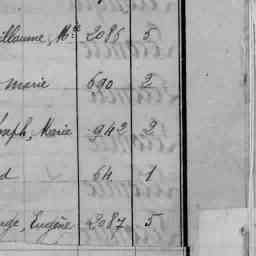 illaume, Mie 2086 5
marie 690 2
oseph, Marie 942 2
d 64 1
nge, Eugène 2087 5